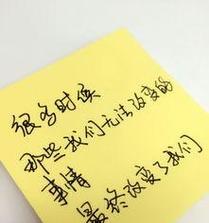 很多时候
那些我们无法改变的
事情
最终改变了我们